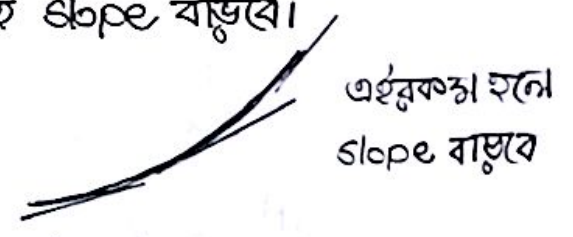 slope বাড়বে।
এইরকম হলে
slope বাড়বে